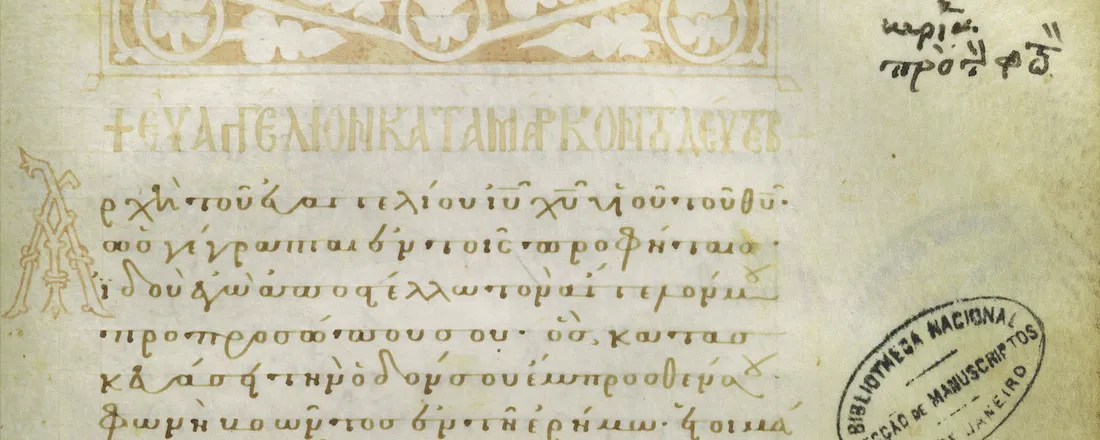 κυρια
πρὸ τ φώτ
+ ΕΥΑΓΓΕΛΙΟΝ ΚΑΤΑ ΜΑΡΚΟΝ
Ἀρχὴ τοῦ εὐαγγελίου ἰῦ χῦ υἱοῦ τοῦ θῦ·
ὡς γέγραπται ἐν τοῖς προφήταις·
ἰδοὺ ἐγὼ ἀποστέλλω τὸν ἄγγελόν μου
πρὸ προσώπου σου· ὃς κατασ
κευάση τὴν ὁδόν σου ἔμπροσθέν σου·
φωνὴ βοῶντος ἐν τῇ ἐρήμω· ἑτοιμά
BIBLIOTHECA NACIONAL
CÇÃO DE MANUSCRIPTOS
JANEIRO